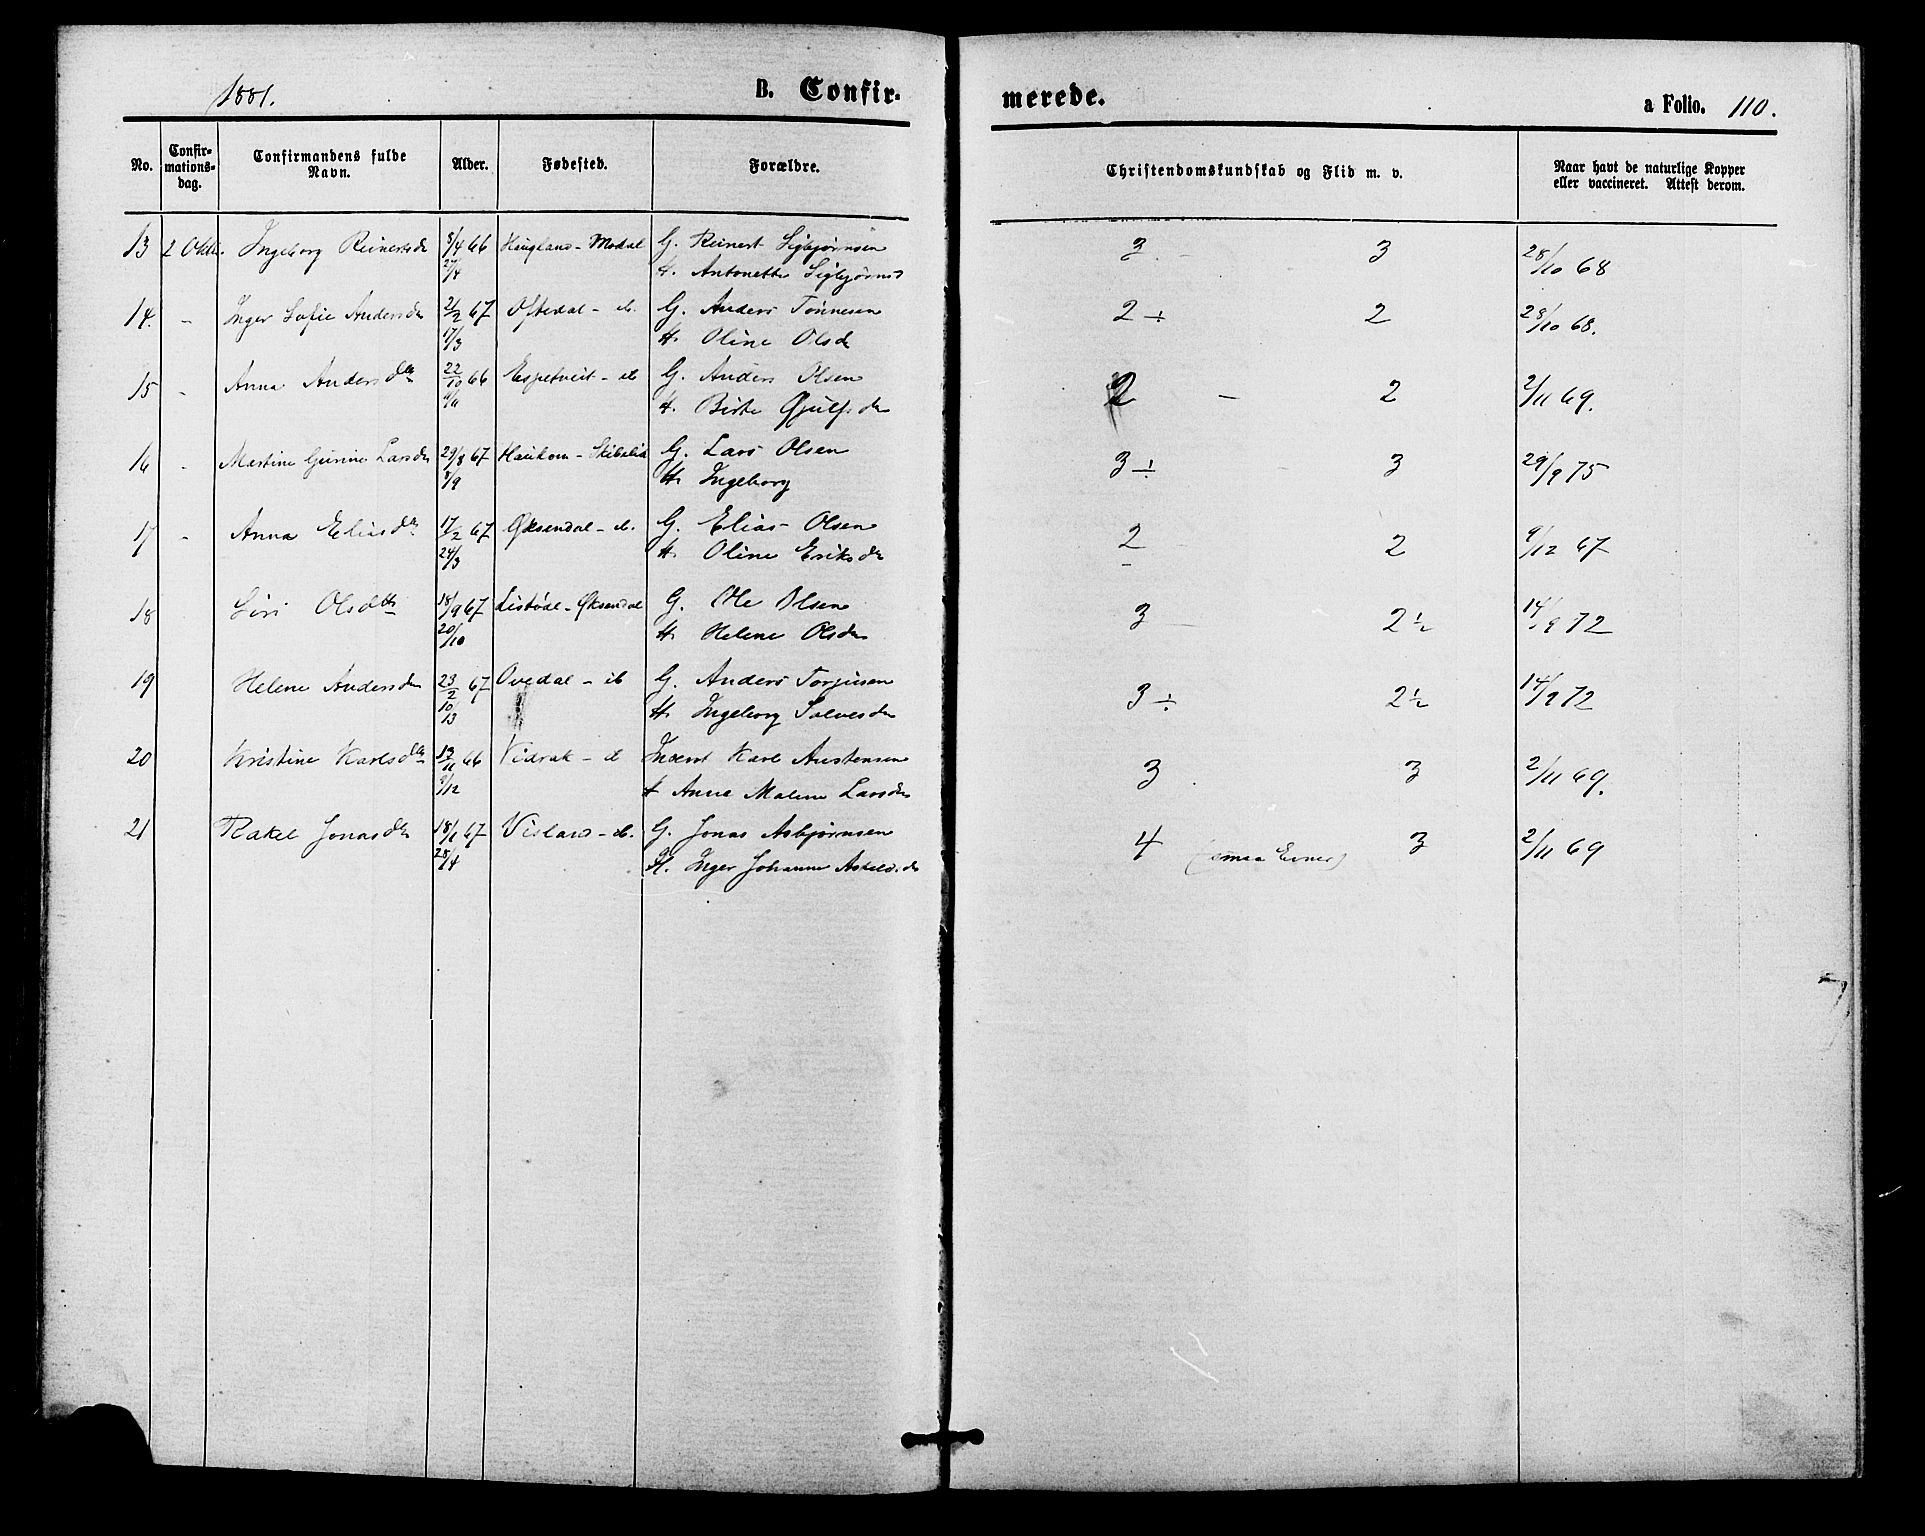 1881. B. Confir- merede. a Folio. 110.
No. Confir-mations-dag. Confirmandens fulde Navn. Alder. Fødested. Forældre. Christendomskundskab og Flid m. v. Naar havt de naturlige Kopper eller vaccineret. Attest derom.
13 2 Oktbr. Ingeborg Reinertsdr 8/4 66 Haugland - Modal G. Reinert Sigbjørnsen 3 - 3 28/10 68
27/4 H. Antonette Sigbjørnsd
14. - Inger Sofie Andersdr 21/2 67 Oftedal - ib. G. Anders Tønnesen 2 ÷ 2 28/10 68.
17/3 H. Oline Olsd
15 - Anna Andersdtr 22/10 66 Espetveit - ib G. Anders Olsen 2 - 2 2/11 69.
H. Birte Gjulfsdr
16 - Martine Gurine Larsdr 29/8 67 Haukom - Skibeliد G. Lars Olsen 3 ÷ - 3 29/9 75
8/9 H. Ingeborg
17 - Anna Eliasdtr 17/2 67 Øksendal - ib. G. Elias Olsen 2 - 2 9/12 67
24/3 H. Oline Eriksdr
18 Siri Olsdtr 18/9 67 Listøl - Øksendal G. Ole Olsen 3 - 2½ 14/9 72
20/10 H. Helene Olsdr
19 Helene Andersdr 23/2 67 Ovedal - ib G. Anders Torjusen 3 ÷ 2½ 14/9 72
10/13 H. Ingeborg Salvesdr
20 Kristine Karlsdtr 13/11 66 Vidrak - ib Inderst Karl Austensen 3 3 2/11 69.
9/12 H Anna Malene Larsdr
21 Rakel Jonasdtr 18/1 67 Visland - ib. G. Jonas Asbjørnsen 4 (smaa Evner) 3 2/11 69
28/4 H. Inger Johanne Askelsdr